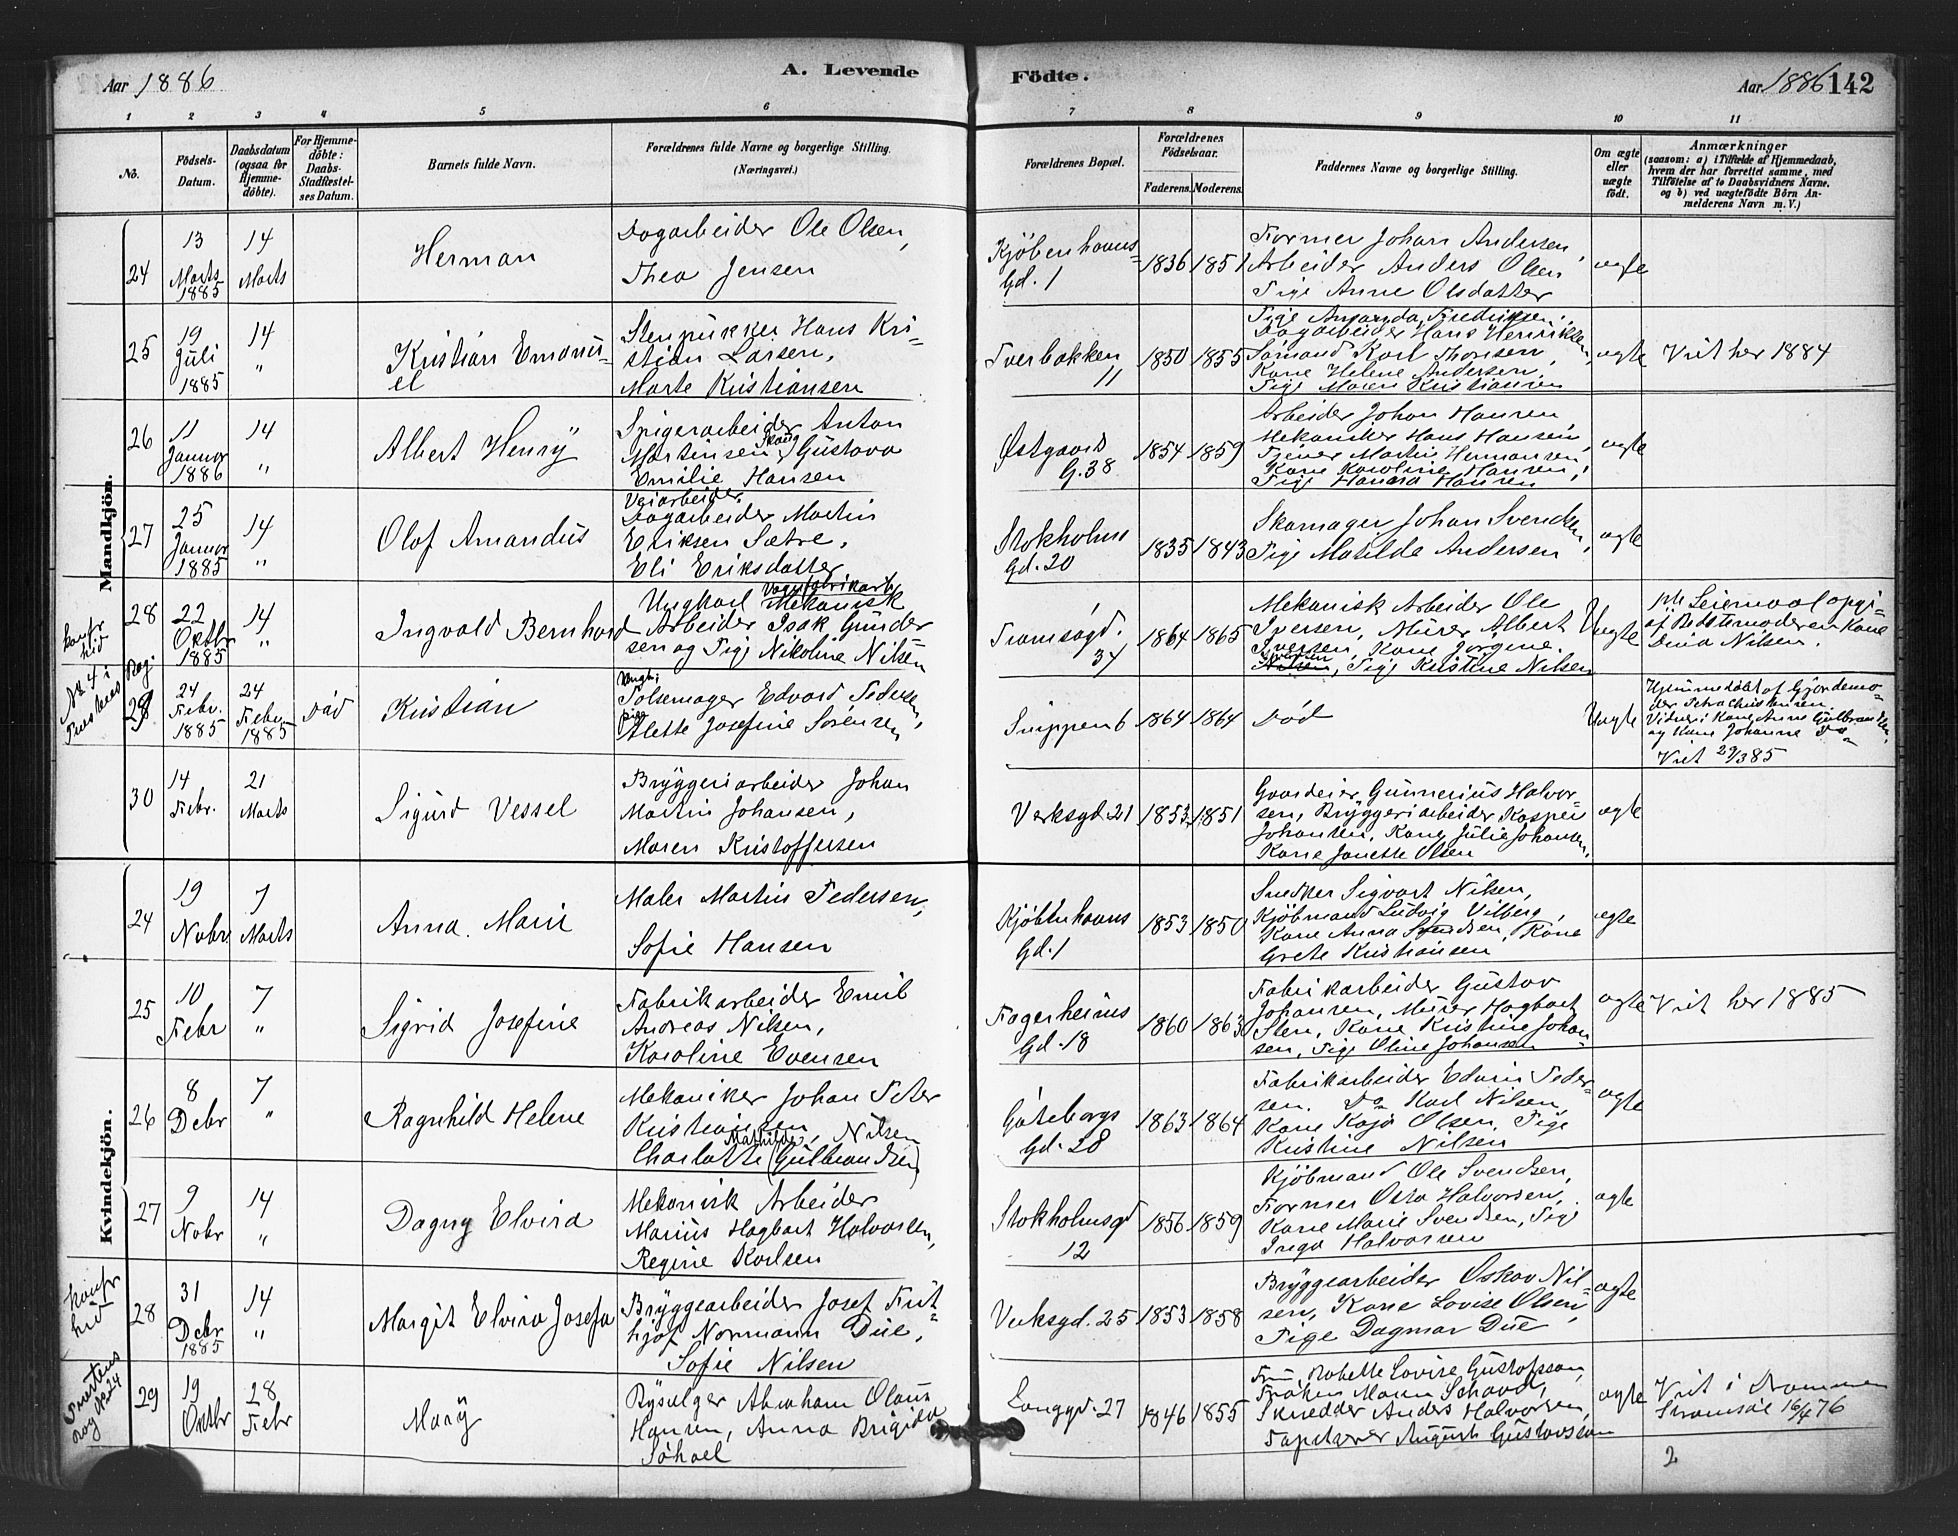 Aar 1886
A. Levende
Födte.
Aar 1886 142
1 2 3 4 5 6 7 8 9 10 11
No.
Födsels-
Datum.
Daabsdatum
(ogsaa for
Hjemme-
döbte).
For Hjemme-
döbte:
Daabs-
Stadfæstel-
ses Datum.
Barnets fulde Navn.
Forældrenes fulde Navne og borgerlige Stilling.
(Næringsvei.)
Forældrenes Bopæl.
Forældrenes
Födselsaar.
Faderens. Moderens.
Faddernes Navne og borgerlige Stilling.
Om ægte
eller
uægte
födt.
Anmærkninger
(saasom: a) i Tilfælde af Hjemmedaab,
hvem der har forrettet samme, med
Tilföielse af to Daabsvidners Navne.
og b) ved uægtefödte Börn An-
melderens Navn m. V.)
Mandkjön.
24
13
Marts
1885
14
Marts
Herman
Dagarbeider Ole Olsen,
Thea Jensen
Kjöbenhavns-
Gd. 1
1836 1851
Former Johan Andersen,
Arbeider Anders Olsen
Pige Anne Olsdatter
ægte
25
19
Juli
1885
14
"
Kristian Emanu-
el
Stenpukker Hans Kri-
stian Larsen,
Marte Kristiansen
Tverbakken
11
1850 1855
Pige Amanda Fredriksen,
Dagarbeider Hans Henriksen,
Sömand Karl Thorsen,
Kone Helene Andersen,
Pige Maren Kristiansen
ægte
Viet her 1884
26
11
Januar
1886
14
"
Albert Henry
Spigerarbeider Anton
Martinsen Skaug, Gustava
Emilie Hansen
Østgaards
G. 38
1854 1859
Arbeider Johan Hansen
Mekaniker Hans Hansen,
Tjener Martin Hermansen
Kone Karoline Hansen,
Pige Hanna Hansen
ægte
27
25
Januar
1885
14
"
Olaf Amandus
Veiarbeider
Dagarbeider Martin
Eriksen Sætre,
Eli Eriksdatter
Stokholms
Gd. 20
1835 1843
Skomager Johan Svendsen,
Pige Matilda Andersen
ægte
konfr
hid
28
22
Oktbr
1885
14
"
Ingvald Bernhard
Ungkarl Mekanisk
Arbeider Isak Gunder
sen og Pige Nikoline Nilsen
Tromsögd.
34
1864 1865
Mekanisk Arbeider Ole
Iversen, Murer Albert
Iversen, Kone Jörgine
Iversen
Nilsen, Pige Kristine Nilsen
Uægte
Leiermaal opgi-
af Bedstemoderen Kone
Dina Nilsen.
No 4 i
29
24
Febr.
1885
24
Febr.
1885
Död
Kristian
Ungk:
Pölsemager Edvard Pedersen,
Pige
Alette Josefine Sörensen
Snippen 6
1864 1864
Död
Uægte
Hjemmedöbt af Gjordemo-
der Petra Christensen.
Vidner: Kone Anne Gulbrandsen,
og Kone Johanne Do
Viet 29/3 85
30
14
Febr.
21
Marts
Sigurd Vessel
Bryggeriarbeider Johan
Martin Johansen,
Maren Kristoffersen
Verksgd. 21
1853 1851
Gaardeier Gunnerius Halvor-
sen, Bryggeriarbeider Kasper
Johansen, Kone Julie Johansen,
Kone Janette Olsen
ægte
Kvindekjön.
24
19
Nobr.
7
Marts
Anna Marie
Maler Martin Pedersen,
Sofie Hansen
Kjöbenhavns
Gd. 1
1853 1850
Snekker Sigvart Nilsen,
Kjöbmand Ludvig Vilberg,
Kone Anna Svendsen, Kone
Grete Kristiansen
ægte
25
10
Febr
7
"
Sigrid Josefine
Fabrikarbeider Emil
Andreas Nilsen,
Karoline Evensen
Fagerheims
Gd. 18
1860 1863
Fabrikarbeider Gustav
Johansen, Murer Hagbart
Sten, Kone Kristine Johan-
sen, Pige Oline Johansen
ægte
Viet her 1885
26
8
Debr
7
"
Ragnhild Helene
Mekaniker Johan Peter
Kristiansen, Nilsen
Mathilde
Charlotte (Gulbrandsen)
Göteborgs
Gd. 28
1863 1864
Fabrikarbeider Edvin Peder-
sen. Do Karl Nilsen
Kone Kaja Olsen, Pige
Kristine Nilsen
ægte
27
9
Nobr
14
"
Dagny Elvira
Mekanisk Arbeider
Marius Hagbart Halvorsen,
Regine Karlsen
Stokholmsgd
12
1856 1859
Kjöbmand Ole Svendsen,
Former Otto Halvorsen,
Kone Marie Svendsen, Pige
Inga Halvorsen
ægte
konfr
hid
28
31
Debr
1885
14
"
Margit Elvira Josefa
Bryggearbeider Josef Frit-
hjof Normann Due,
Sofie Nilsen
Verksgd. 25
1853 1858
Bryggearbeider Oskar Nil-
sen, Kone Lovise Olsen,
Pige Dagmar Due
ægte
29
19
Oktbr
28
Febr
Mary
Bysælger Abraham Olaus
Hansen, Anna Brigida
Schael
Langgd. 27
1846 1855
Fru Babette Lovise Gustafsson,
Fröken Maren Schaed,
Skredder Anders Halvorsen,
Tapetserer August Gustavsson
ægte
Viet i Drammen
Strömsöe 16/4 76
2